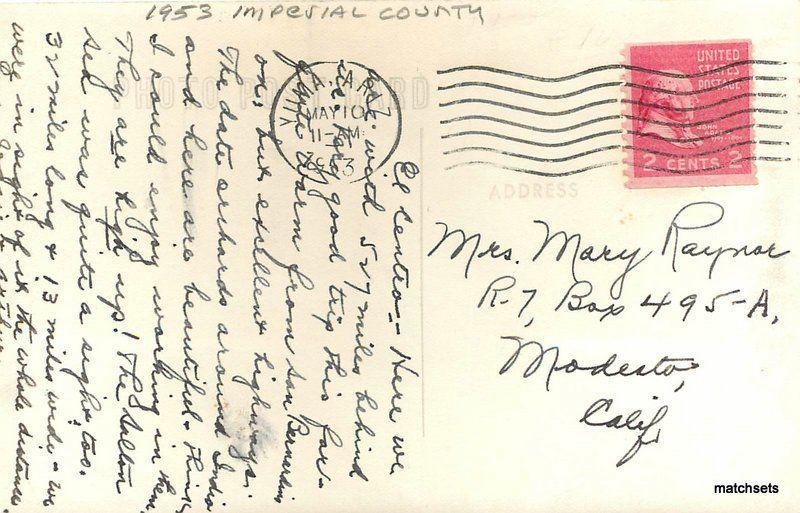 1953 IMPERIAL COUNTY
PHOTO POST CARD
YUMA, ARIZ
MAY 10
11-AM
1953
UNITED
STATES
POSTAGE
JOHN
ADAMS
2 CENTS 2
ADDRESS
Mrs. Mary Raynor
R-7, Box 495-A,
Modesto,
Calif.
El Centro - Here we
are with 527 miles behind
us. Very good trip this far.
Quite warm from San Bernardino
on, but excellent highways.
The date orchards around Indio
and here are beautiful - Things
I could enjoy working in them
They are high up! The Salton
sea was quite a sight, too.
32 miles long & 13 miles wide - we
were in sight of it the whole distance.
matchsets